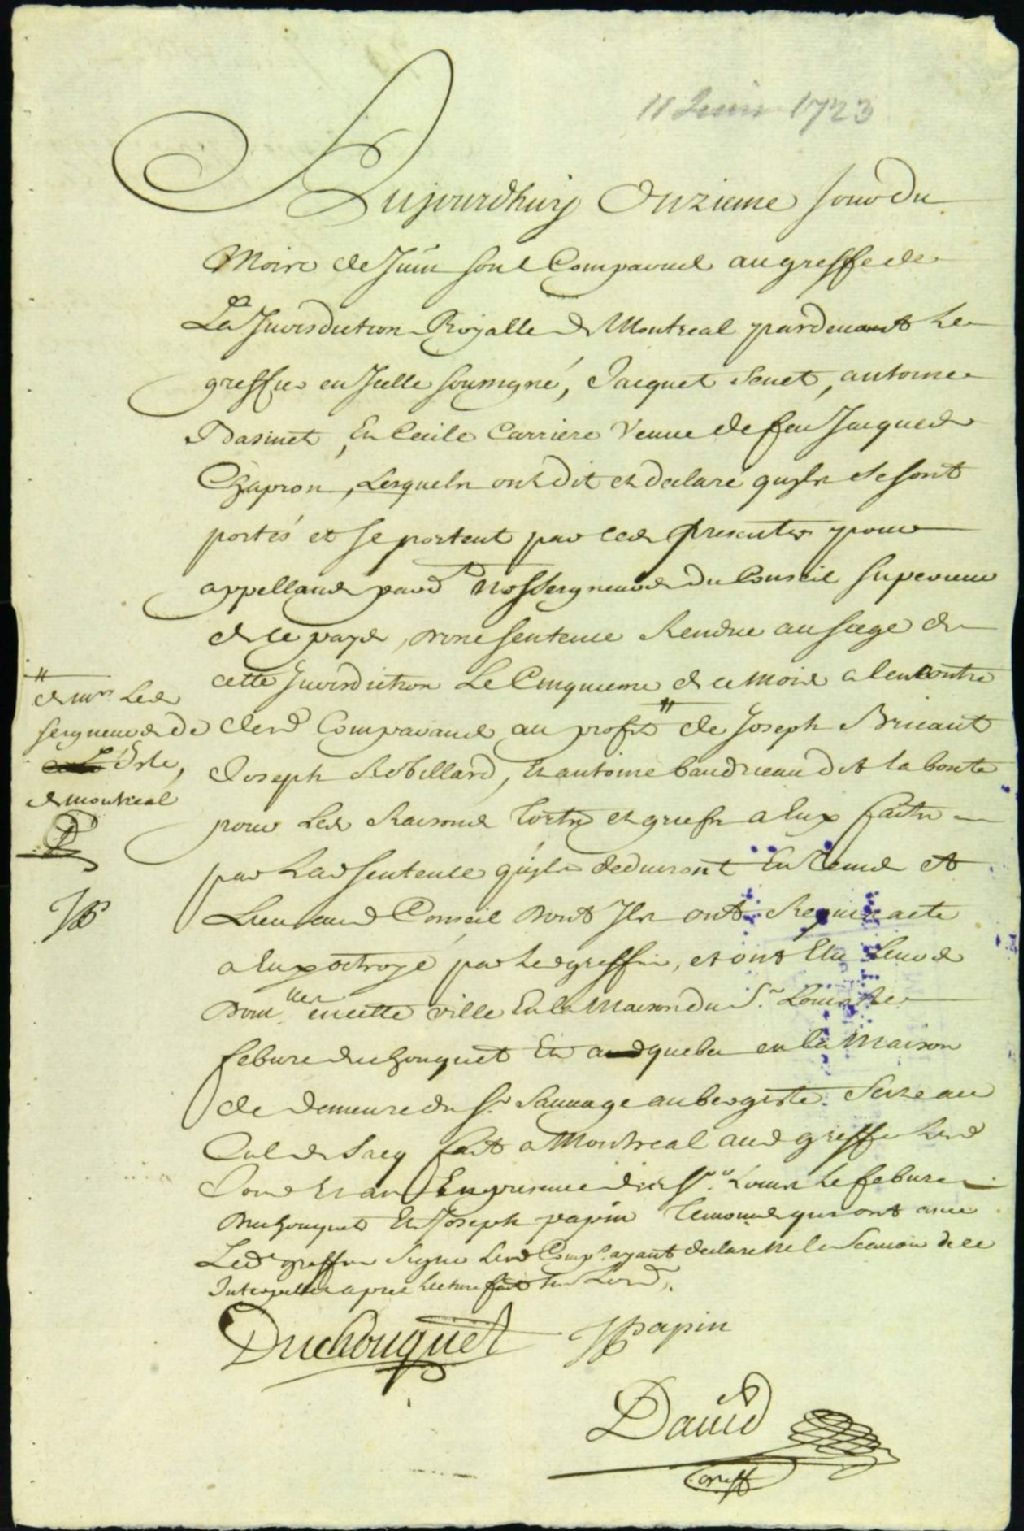 11 Juin 1723
Aujourdhuy Onzieme Jour du
Mois de Juin sont Comparus au greffe de
La Jurisdiction Royalle de Montreal pardevant Le
greffier en Icelle soussigné, Jacques Sauet, antoine
Basinet, Et Cecile Carriere Veuue de feu Jacques
Chapron, Lesquels ont dit et declaré quyls se sont
portés et se portent par ces presentes pour
appellans pard. Nosseigneurs du Conseil superieur
de ce pays, dune sentence Rendue au siege de
cette Jurisdiction Le Cinquieme de ce mois a lencontre
desd. Comparans au profit " de Joseph Bricaut
" de Mrs Les
seigneurs de
L'Isle,
de montreal
Joseph Robillard, Et antoine baudrieau dit la bonte
pour Les Raisons torts et griefs a Eux faits
par Lad. sentence quyls deduiront En temps et
Lieu aud. Conseil dont Ils ont Requis acte
a Eux octroyé par Led. greffier, et ont Elu Leurs
domlles en cette ville En la Maison du Sr. Louis Le
febure duchouquet Et a quebec en la Maison
de demeure du Sr. Sauuage aubergiste size au
Cul de sacq fait a Montreal aud. greffe Lesd.
Jour Et an En presence des Srs. Louis Le febure
duchouquet Et Joseph papin temoins qui ont auec
Led. greffier signé Lesd. Comp. ayant declaré ne le scauoir de ce
Interpellés apres Lecture faite sur Lord.
Duchouquet JPapin
JP
David
Greff